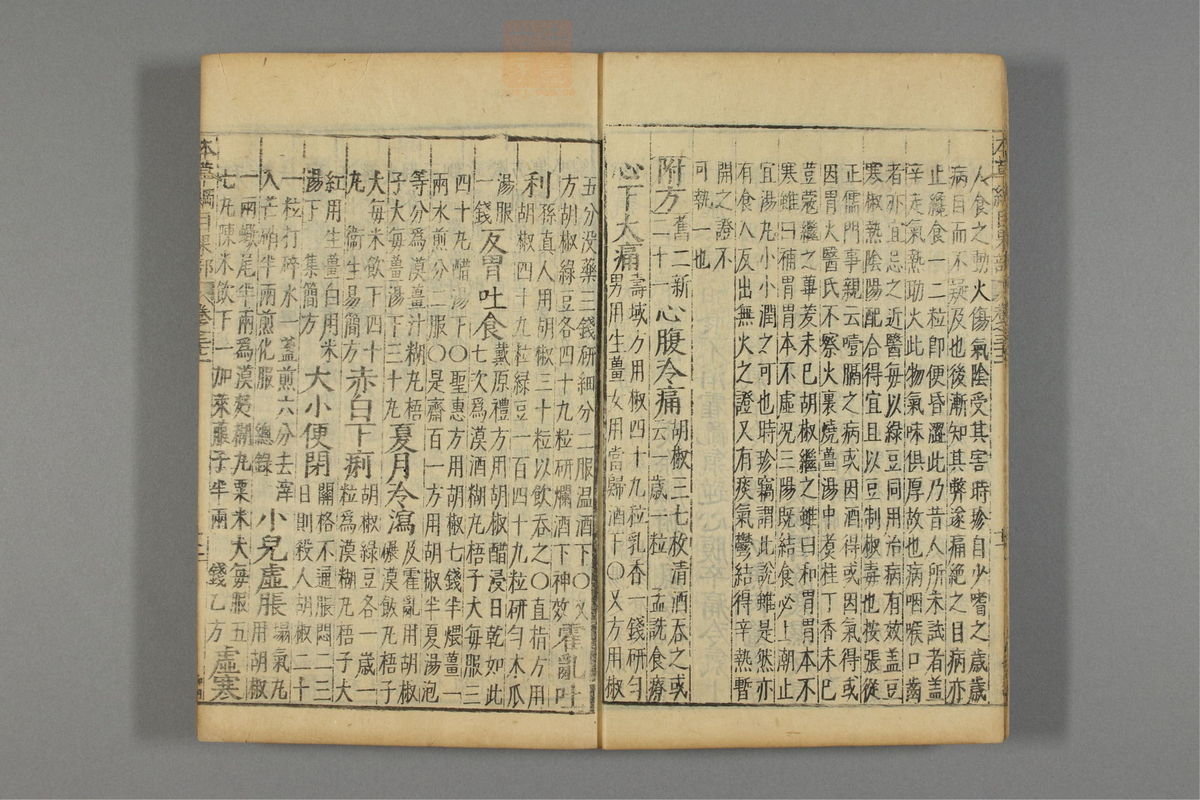 人食之動火傷氣陰受其害時珍自少嗜之歲歲
病目而不疑及也後漸知其弊遂痛絕之目病亦
止纔食一二粒即便昏澀此乃昔人所未試者蓋
辛走氣熱助火此物氣味俱厚故也病咽喉口齒
者亦宜忌之近醫每以綠豆同用治病有效蓋豆
寒椒熱陰陽配合得宜且以豆制椒毒也按張從
正儒門事親云噎膈之病或因酒得或因氣得或
因胃火醫氏不察火裏燒薑湯中煮桂丁香未已
荳蔻繼之蓽茇未已胡椒繼之雖曰和胃胃本不
寒雖曰補胃胃本不虛況三陽既結食必上潮止
宜湯丸小小潤之可也時珍竊謂此說雖是然亦
有食入反出無火之證又有痰氣鬱結得辛熱暫
開之證不
可執一也
附方 舊二新二十一 心腹冷痛 胡椒三七枚清酒吞之或云一歲一粒 孟詵食療
心下大痛 壽域方用椒四十九粒乳香一錢研勻男用生薑女用當歸酒下〇又方用椒
五分没藥三錢研細分二服温酒下〇又
方胡椒綠豆各四十九粒研爛酒下神效 霍亂吐
利 孫真人用胡椒三十粒以飲吞之〇直指方用
胡椒四十九粒綠豆一百四十九粒研勻木瓜
湯服一錢 反胃吐食 戴原禮方用胡椒醋浸日乾如此七次爲漠酒糊丸梧子大每服三
四十丸醋湯下〇聖惠方用胡椒七錢半煨薑一
兩水煎分二服〇是齋百一方用胡椒半夏湯泡
等分爲漠薑汁糊丸梧子大每薑湯下三十丸 夏月冷瀉 及霍亂用胡椒碾漠飲丸梧子
大每米飲下四十丸 衞生易簡方 赤白下痢 胡椒綠豆各一歲一粒爲漠糊丸梧子大
紅用生薑白用米湯下 集簡方 大小便閉 關格不通脹悶二三日則殺人胡椒二十
一粒打碎水一盞煎六分去滓入芒硝半兩煎化服 總錄 小兒虛脹 塌氣丸用胡椒
一兩蠍尾半兩爲漠麪糊丸粟米大每服五
七丸陳米飲下一加萊菔子半兩 錢乙方 虛寒
本草綱目果部 卷之三十二